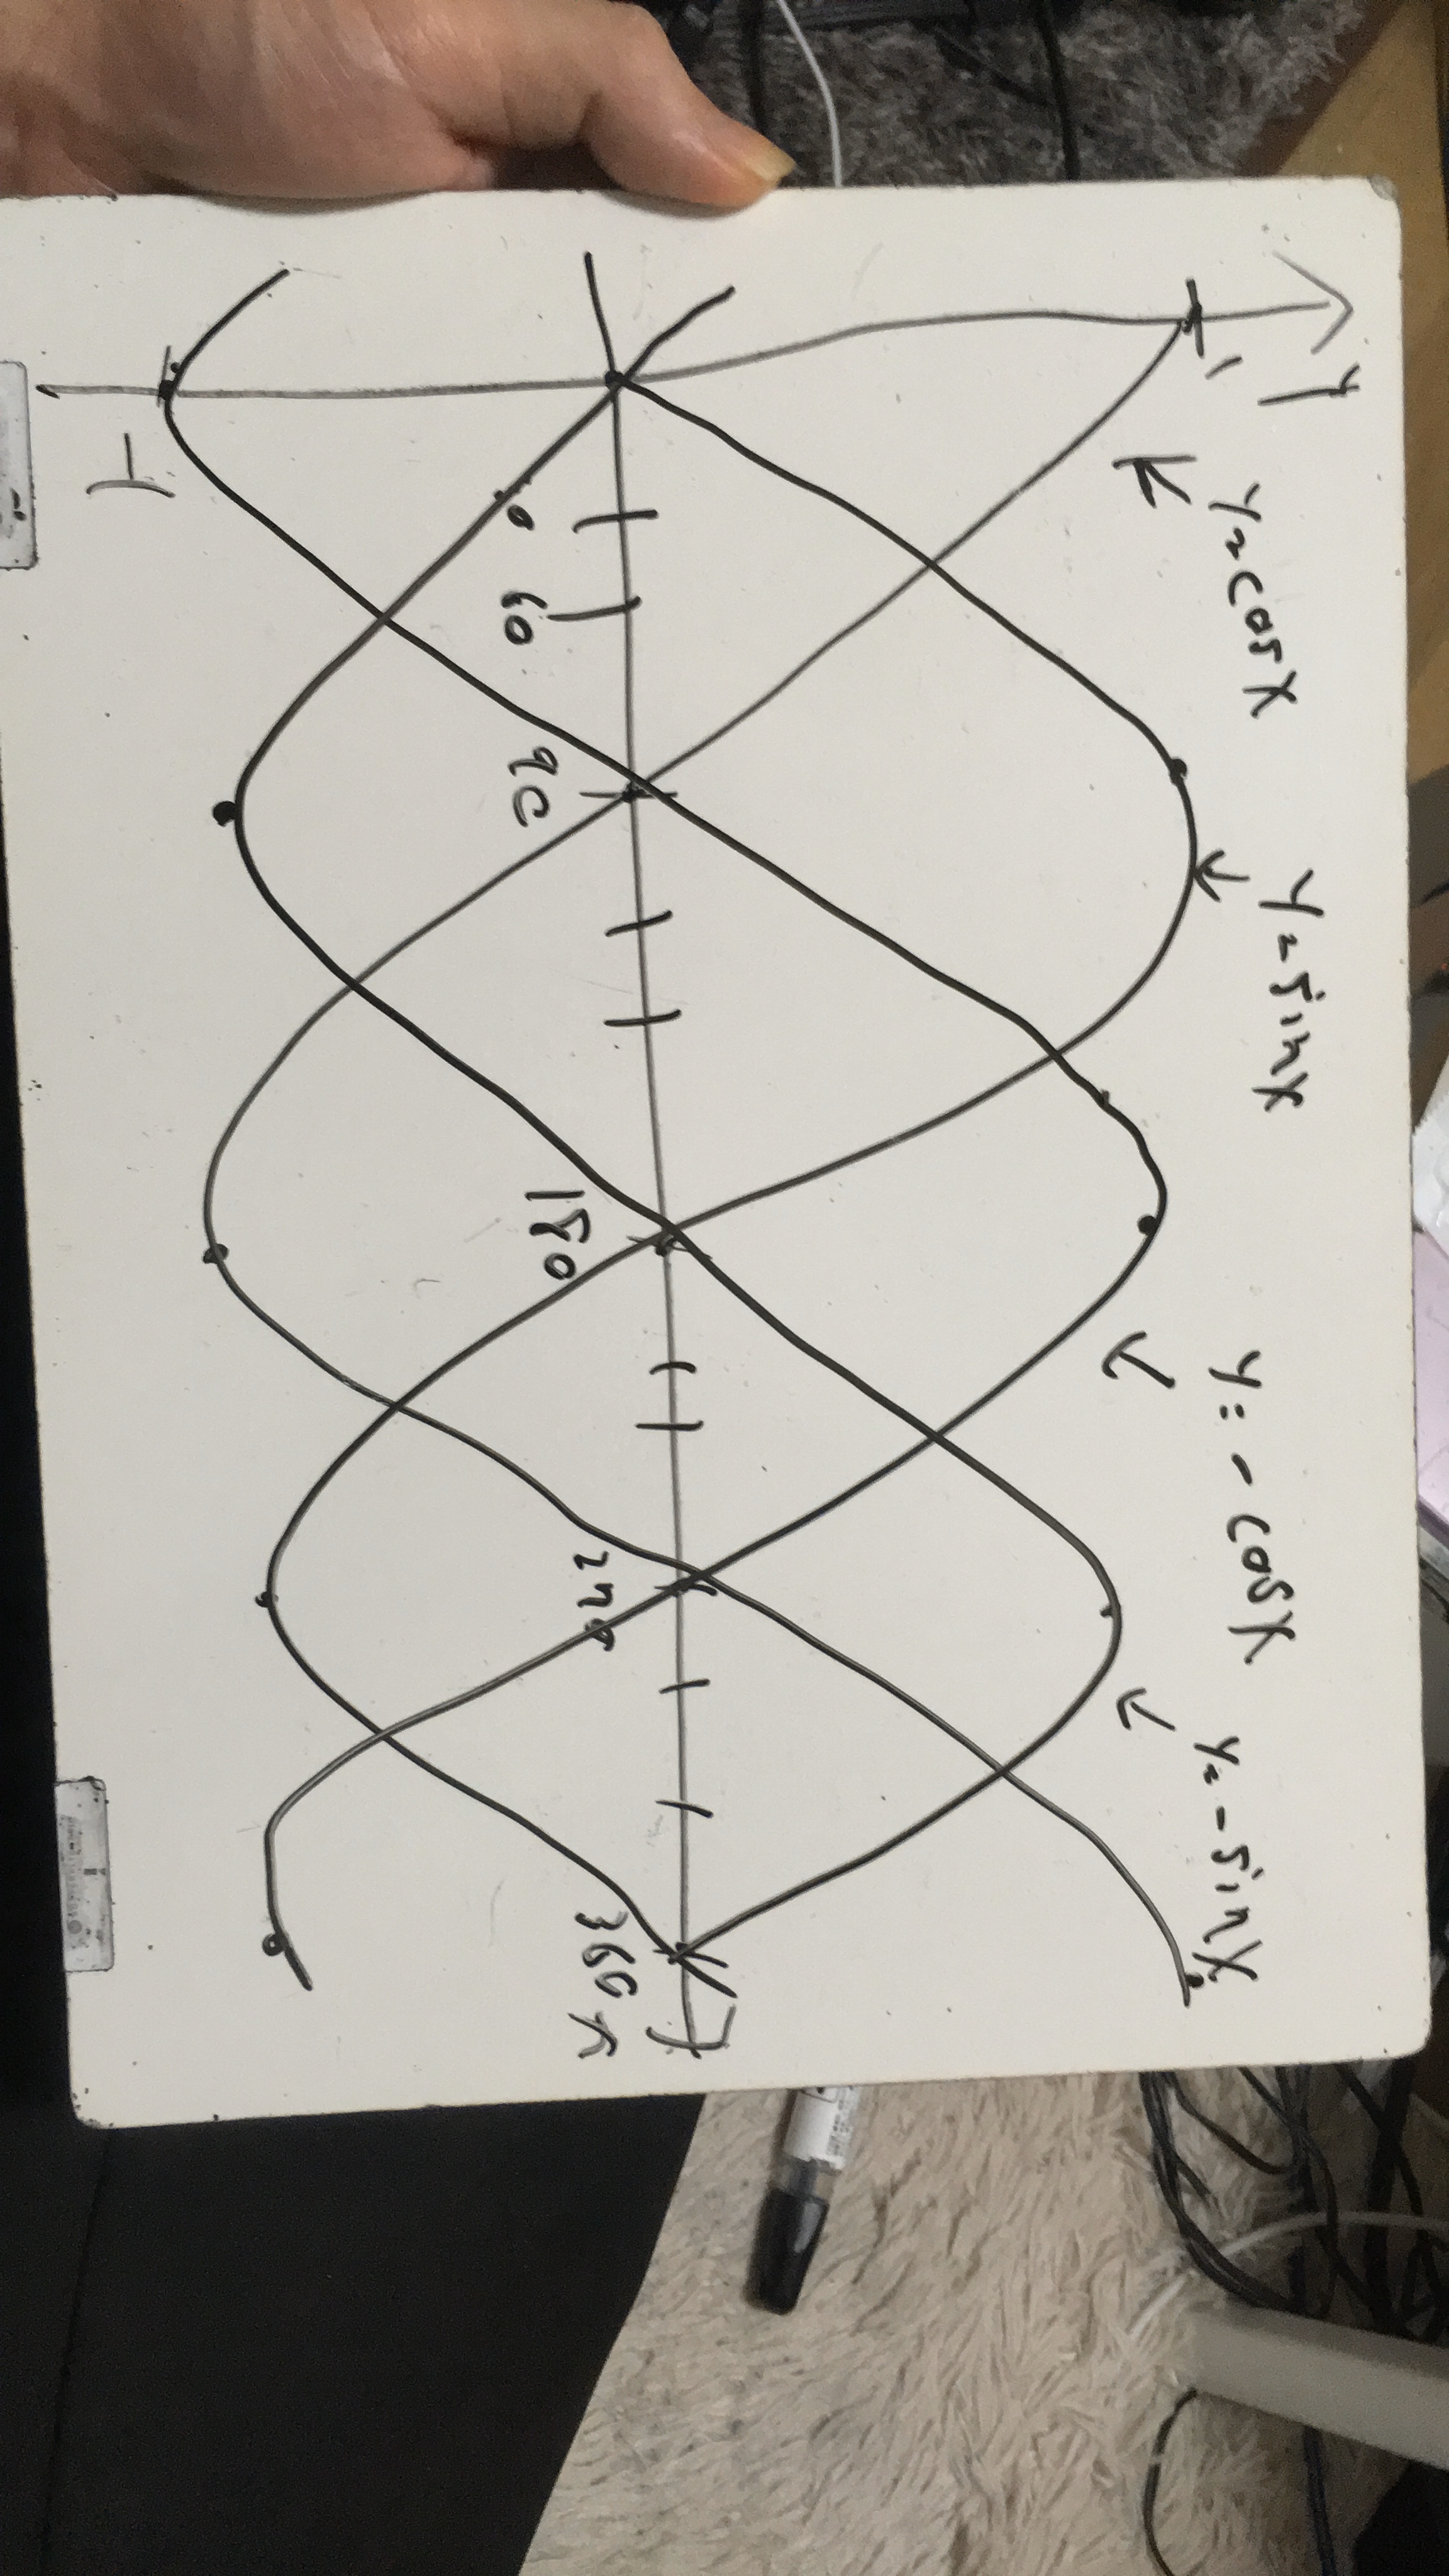 y
1
y=cosx
y=sinx
y=-cosx
y=-sinx
60
90
180
270
360
x
-1